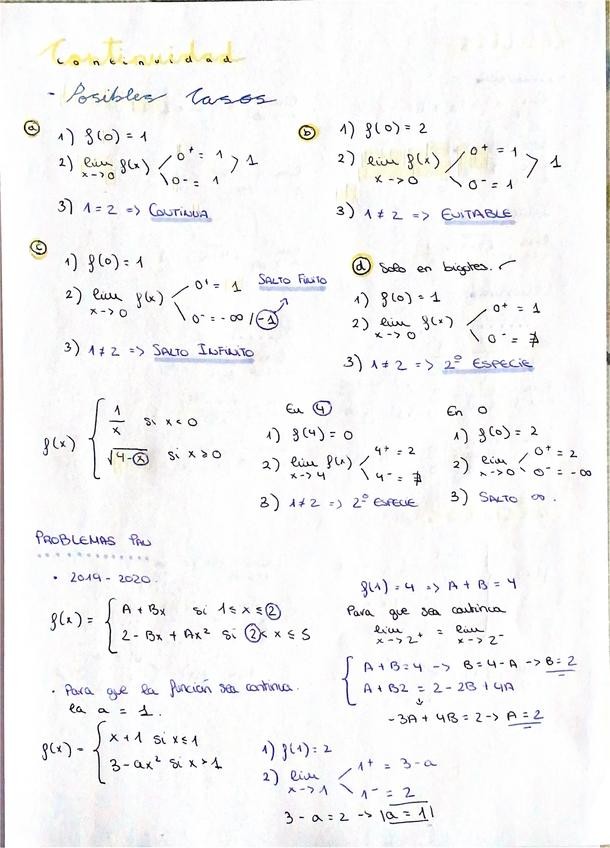 Continuidad
- Posibles Casos
a
1) f(0) = 1
2) lim x->0 f(x) 0+ = 1 0- = 1 > 1
3) 1 = 2 => CONTINUA
b
1) f(0) = 2
2) lim x->0 f(x) 0+ = 1 0- = 1 > 1
3) 1 ≠ 2 => EVITABLE
c
1) f(0) = 1
2) lim x->0 f(x) 0+ = 1 0- = -∞ / -1
SALTO FINITO
3) 1 ≠ 2 => SALTO INFINITO
d Solo en bigotes.
1) f(0) = 1
2) lim x->0 f(x) 0+ = 1 0- = ∄
3) 1 ≠ 2 => 2º ESPECIE
f(x) { 1/x si x < 0
√4-x si x ≥ 0
En 4
1) f(4) = 0
2) lim x->4 f(x) 4+ = 2 4- = ∄
3) 1 ≠ 2 => 2º ESPECIE
En 0
1) f(0) = 2
2) lim x->0 0+ = 2 0- = -∞
3) SALTO ∞.
PROBLEMAS PAU
• 2019 - 2020.
f(x) = { A + Bx si 1 ≤ x ≤ 2
2 - Bx + Ax² si 2 < x ≤ 5
f(1) = 4 => A + B = 4
Para que sea continua
lim x->2+ = lim x->2-
{ A + B = 4 -> B = 4 - A -> B = 2
A + B2 = 2 - 2B + 4A
↓
-3A + 4B = 2 -> A = 2
• Para que la función sea continua.
la a = 1.
f(x) = { x + 1 si x ≤ 1
3 - ax² si x > 1
1) f(1) = 2
2) lim x->1 1+ = 3 - a 1- = 2
3 - a = 2 -> |a = 1|